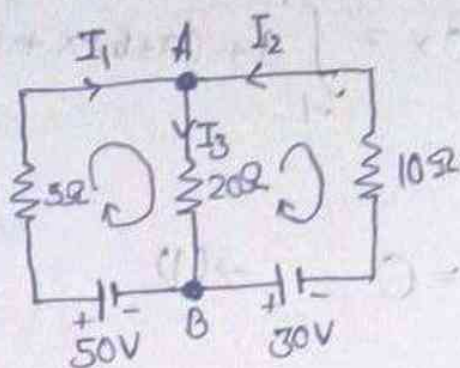 I₁ A I₂
I₃
5Ω 20Ω 10Ω
+ - B + -
50V 30V